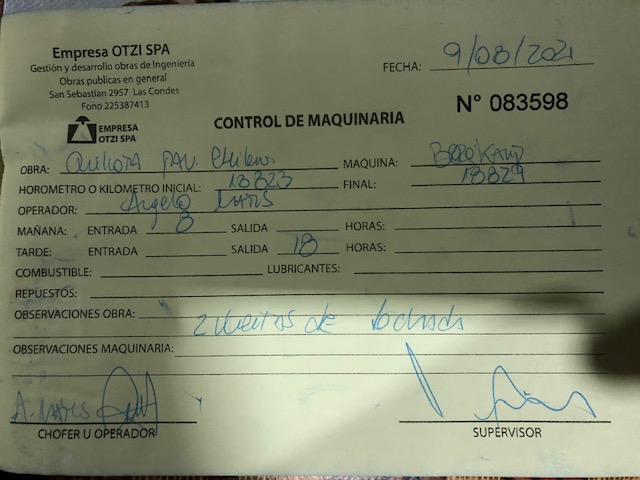 Empresa OTZI SPA
Gestión y desarrollo obras de Ingenieria
Obras publicas en general
San Sebastian 2957 Las Condes
Fono 225387413
FECHA: 9/08/2021
EMPRESA
OTZI SPA
Nº 083598
CONTROL DE MAQUINARIA
OBRA: MAQUINA:
HOROMETRO O KILOMETRO INICIAL: 18823 FINAL: 18829
OPERADOR: Angelo
MAÑANA: ENTRADA 8 SALIDA HORAS:
TARDE: ENTRADA SALIDA 18 HORAS:
COMBUSTIBLE: LUBRICANTES:
REPUESTOS:
OBSERVACIONES OBRA: 2 de
OBSERVACIONES MAQUINARIA:
CHOFER U OPERADOR SUPERVISOR